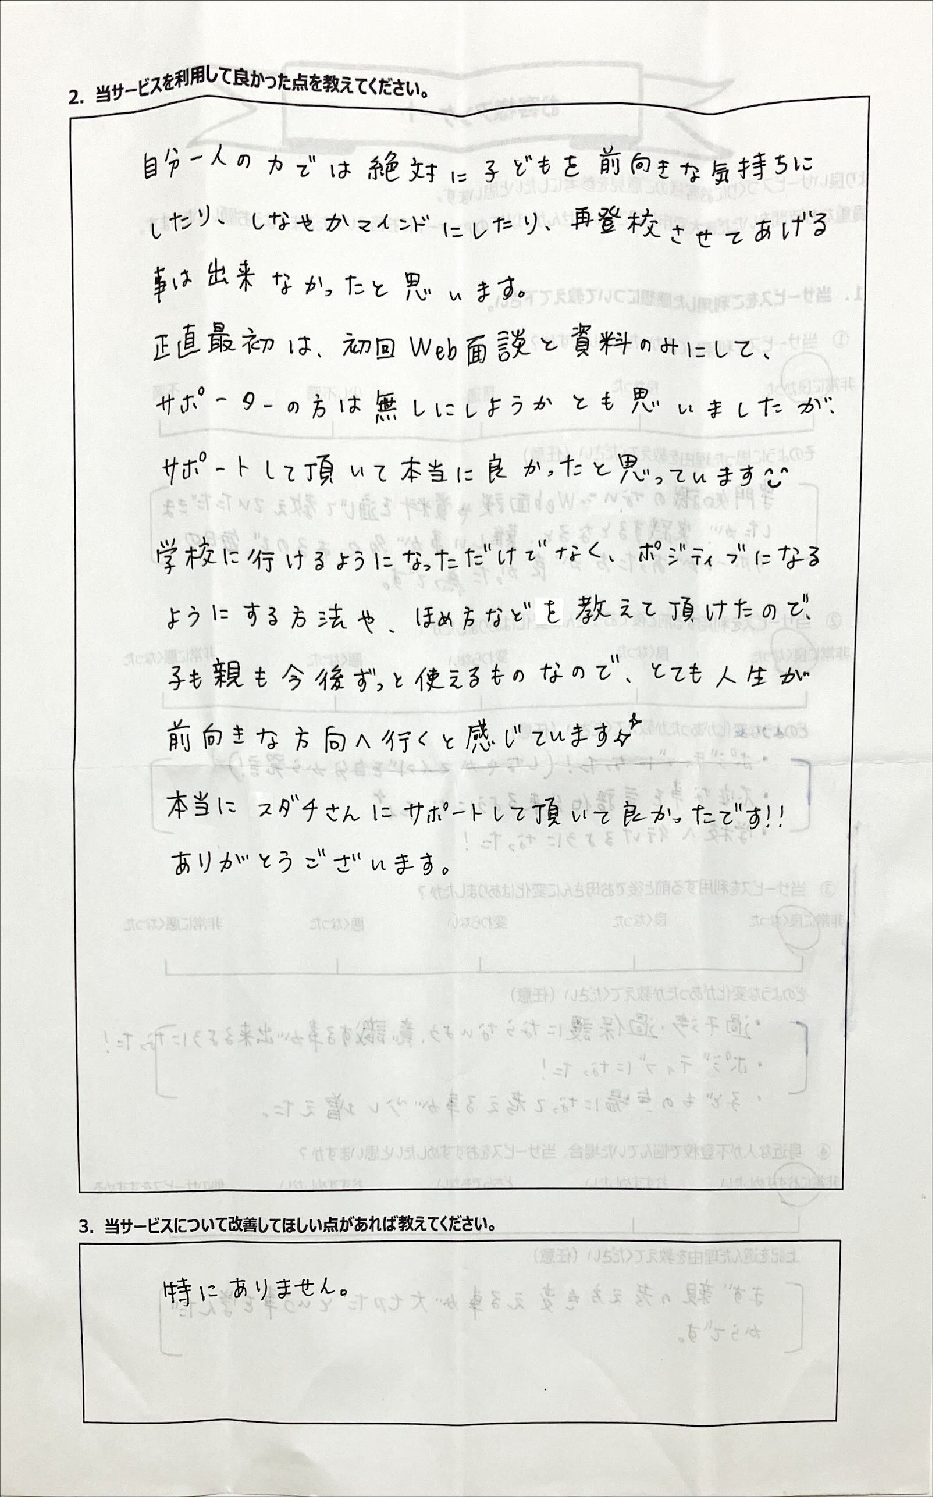 2. 当サービスを利用して良かった点を教えてください。
自分一人の力では絶対に子どもを前向きな気持ちに
したり、しなやかマインドにしたり、再登校させてあげる
事は出来なかったと思います。
正直最初は、初回Web面談と資料のみにして、
サポーターの方は無しにしようかとも思いましたが、
サポートして頂いて本当に良かったと思っています
学校に行けるようになっただけでなく、ポジティブになる
ようにする方法や、ほめ方などを教えて頂けたので、
子も親も今後ずっと使えるものなので、とても人生が
前向きな方向へ行くと感じています
本当にスダチさんにサポートして頂いて良かったです!!
ありがとうございます。
3. 当サービスについて改善してほしい点があれば教えてください。
特にありません。